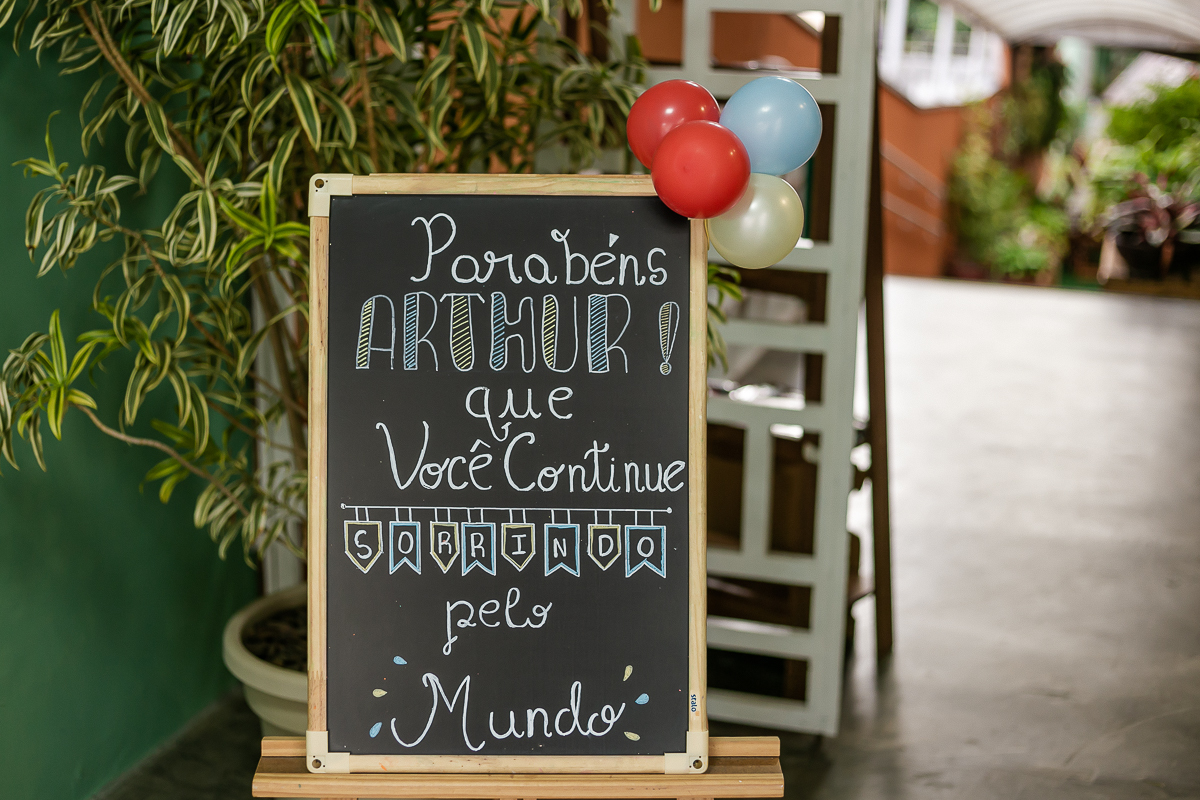 Parabéns
ARTHUR!
que
Você Continue
SORRINDO
pelo
Mundo
stalo